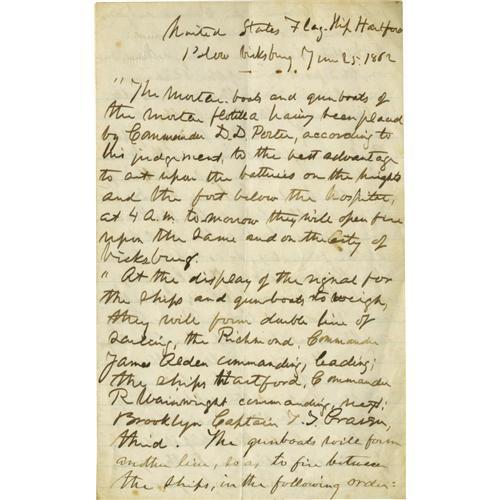 United States Flag-Ship Hartford
Below Vicksburg June 25. 1862
"The Mortar boats and gunboats of
the mortar flotilla having been placed
by Commander D. D. Porter, according to
his judgement, to the best advantage
to act upon the batteries on the heights
and the fort below the hospital,
at 4 A.M. to-morrow they will open fire
upon the same and on the City of
Vicksburg.
"At the display of the signal for
the ships and gunboats to weigh,
they will form double line of
sailing, the Richmond, Commander
James Alden commanding, leading;
the ships Hartford, Commander
R Wainwright commanding, next;
Brooklyn Captain T. T. Craven,
third. The gunboats will form
another line, so as to fire between
the ships, in the following order: